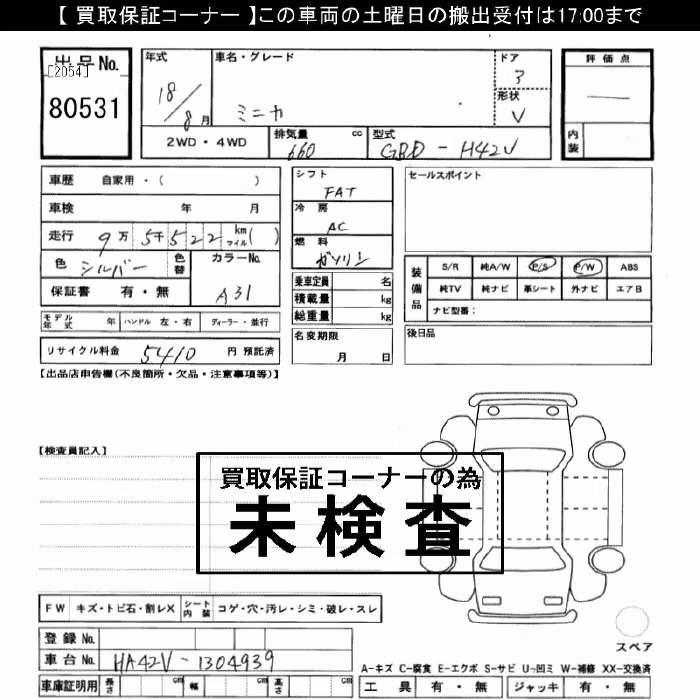 【 買取保証コーナー 】この車両の土曜日の搬出受付は17:00まで
出品No.
[2054]
80531
年式
18/8月
車名・グレード
ミニカ
ドア
ア
形状
V
評価点
—
内装
2WD・4WD
排気量 cc
660
型式
GBD-H42V
車歴 自家用・( )
車検 年 月
走行 9万5千522 km マイル( )
色 シルバー
色替
カラーNo.
A31
保証書 有・無
モデル年式 年 ハンドル 左・右 ディーラー・並行
リサイクル料金 5410 円 預託済
シフト
FAT
冷房
AC
燃料
ガソリン
乗車定員 名
積載量 kg
総重量 kg
名変期限
月 日
セールスポイント
装備品
S/R 純A/W P/S P/W ABS
純TV 純ナビ 革シート 外ナビ エアB
ナビ型番：
後日品
【出品店申告欄(不良箇所・欠品・注意事項等)】
【検査員記入】
買取保証コーナーの為
未検査
FW キズ・トビ石・割レX
シート内装 コゲ・穴・汚レ・シミ・破レ・スレ
登録No.
車台No. HA42V-1304939
車庫証明用 長さ cm 幅 cm 高さ cm
スペア
A-キズ C-腐食 E-エクボ S-サビ U-凹ミ W-補修 XX-交換済
工具 有・無 ジャッキ 有・無